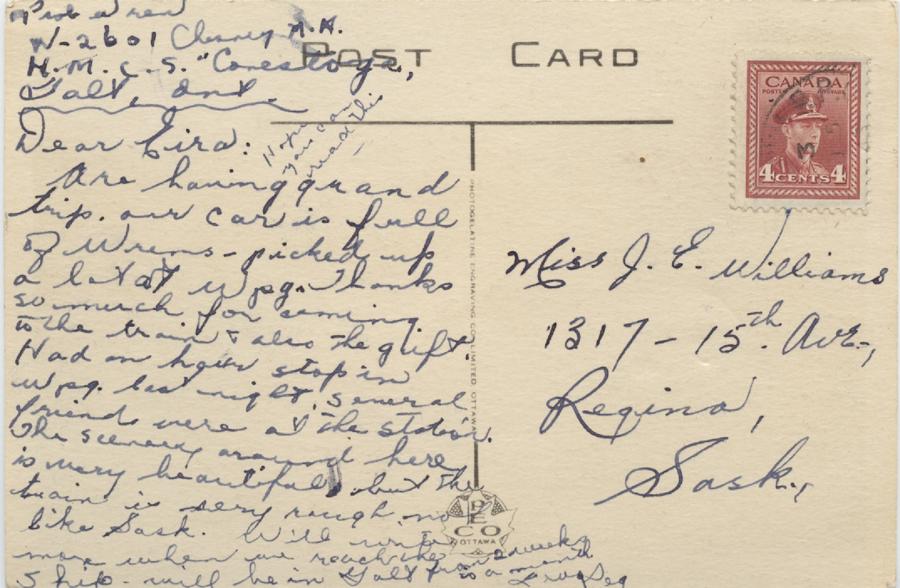 Prob Wren
W-2601 Chesney M.H.
H.M.C.S. "Conestoga,
Galt, Ont.
Hope
you can
read this
Dear Eira:
Are having grand
trip. our car is full
of Wrens - picked up
a lot at Wpg. Thanks
so much for coming
to the train & also the gift.
Had an hour stop in
Wpg. last night, several
friends were at the station.
The scenery around here
is very beautiful, but the
train is very rough, no
like Sask. Will write
more when we reach the
Ship - will be in Galt from 2 weeks
to a month
POST CARD
PHOTOGELATINE ENGRAVING CO. LIMITED, OTTAWA
PECO
OTTAWA
CANADA
POSTES POSTAGE
4 CENTS 4
Miss J. E. Williams
1317 - 15th. Ave.,
Regina,
Sask.,